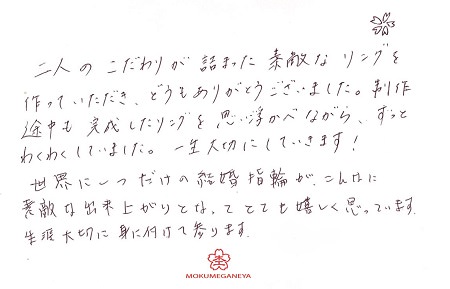 二人の こだわりが 詰まった 素敵な リングを
作っていただき、どうもありがとうございました。制作
途中も 完成したリングを 思い浮かべながら、ずっと
わくわくしていました。一生大切にしていきます！
世界に一つだけの結婚指輪が、こんなに
素敵な出来上がりとなってとても嬉しく思っています。
生涯大切に身に付けて参ります。
MOKUMEGANEYA